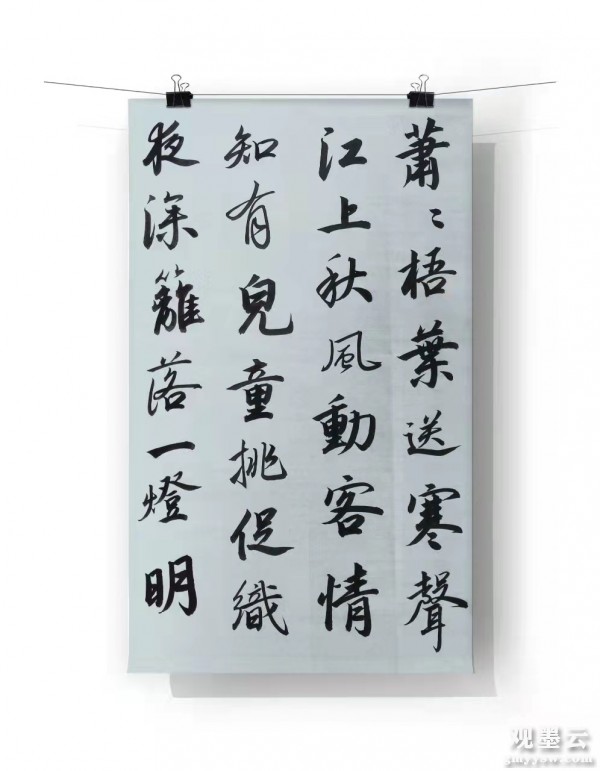 蕭〻梧葉送寒聲
江上秋風動客情
知有兒童挑促織
夜深籬落一燈明
观墨云
gmyysw.com